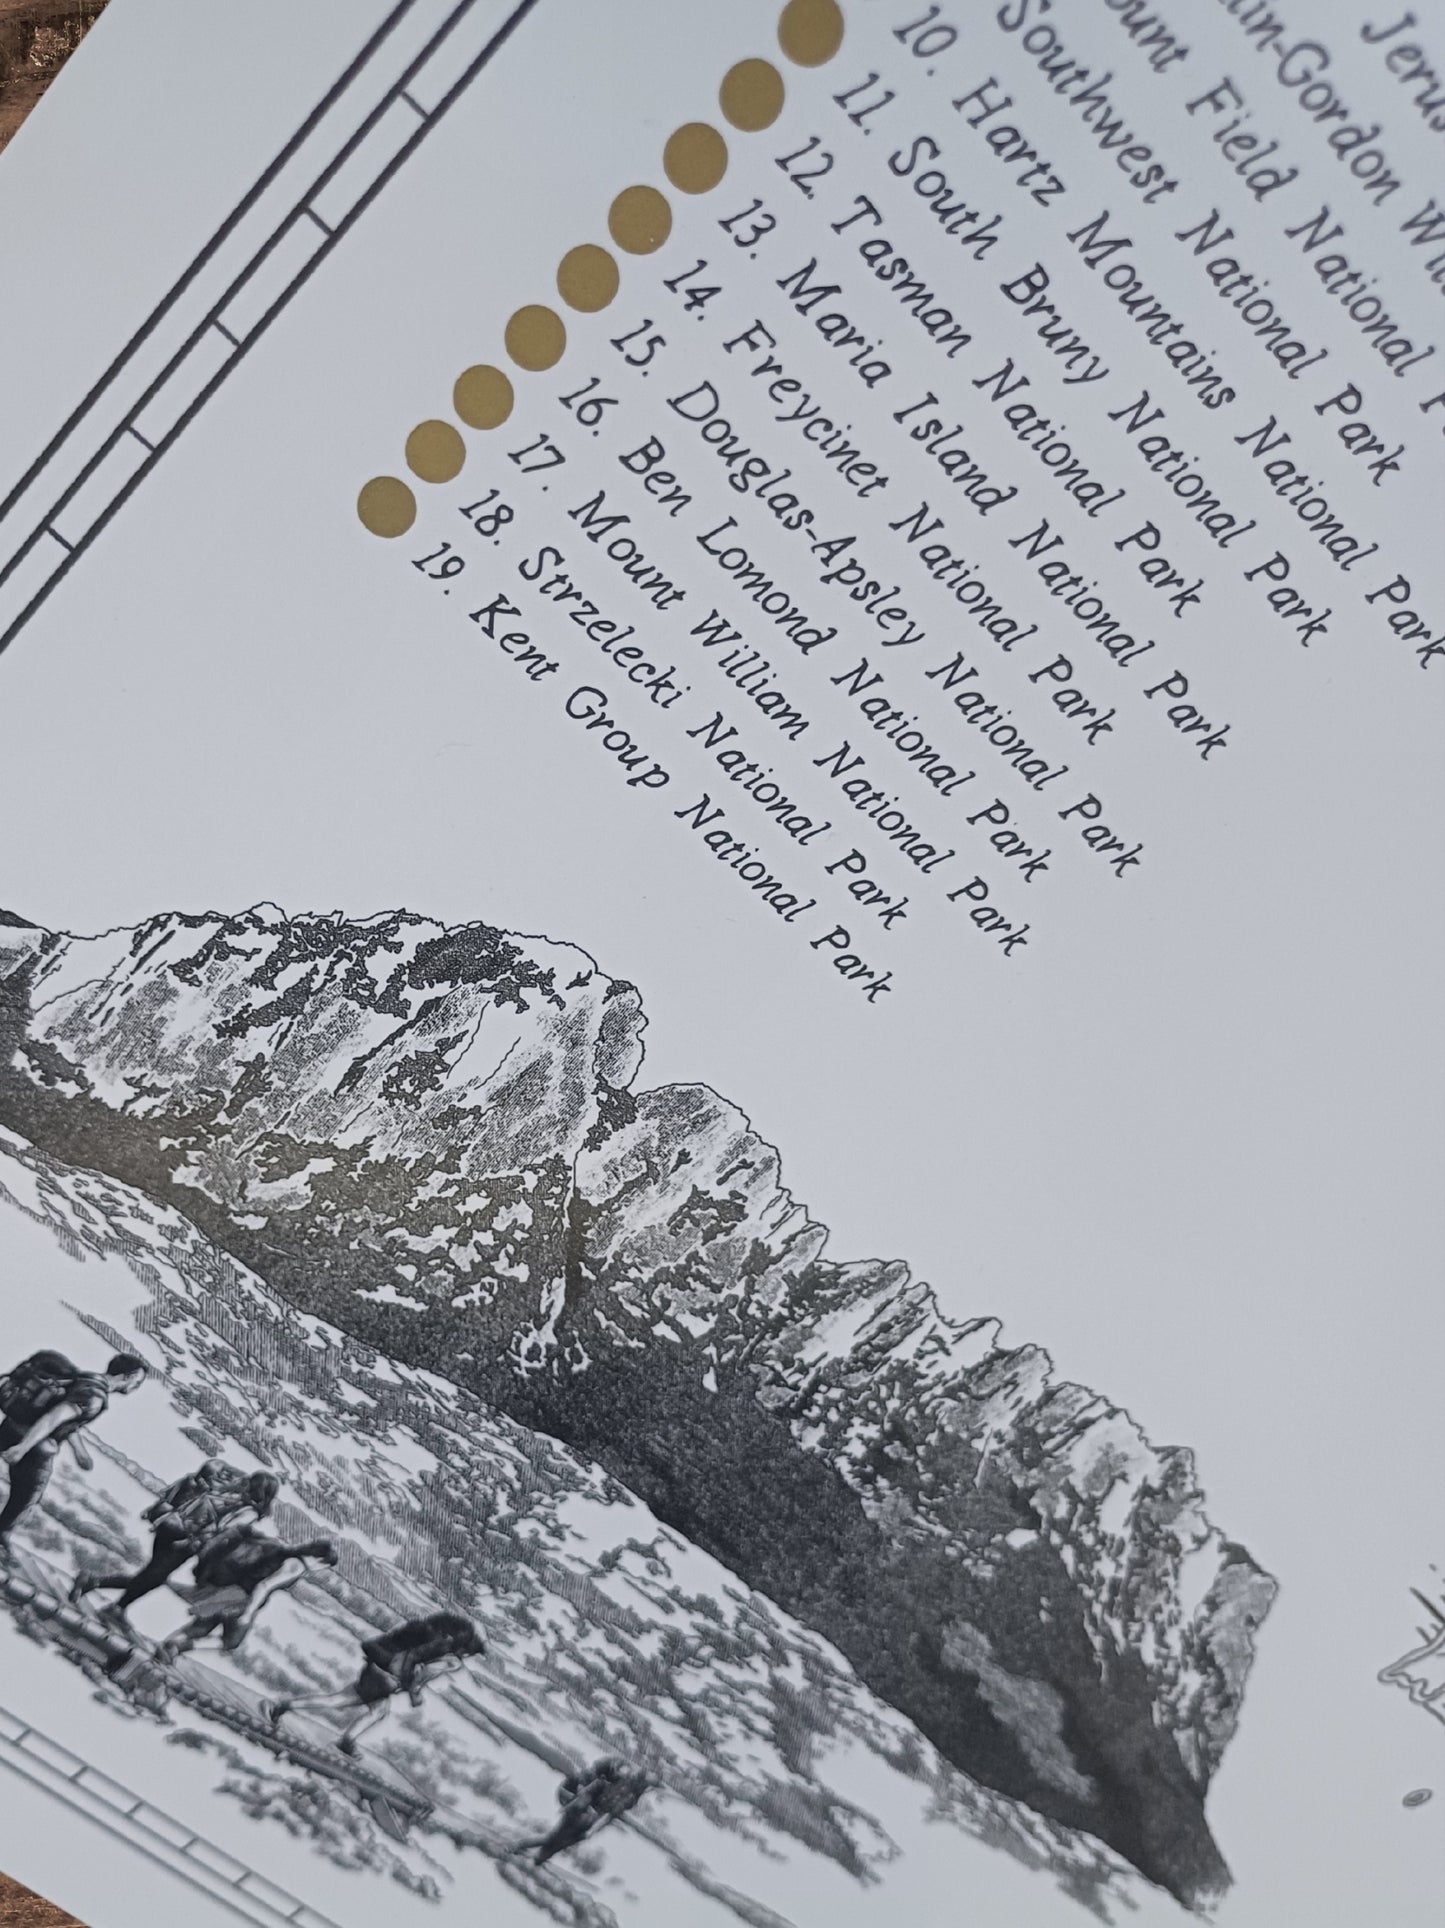 Jerus
in-Gordon Wil
ount Field National
Southwest National Park
10. Hartz Mountains National Park
11. South Bruny National Park
12. Tasman National Park
13. Maria Island National Park
14. Freycinet National Park
15. Douglas-Apsley National Park
16. Ben Lomond National Park
17. Mount William National Park
18. Strzelecki National Park
19. Kent Group National Park